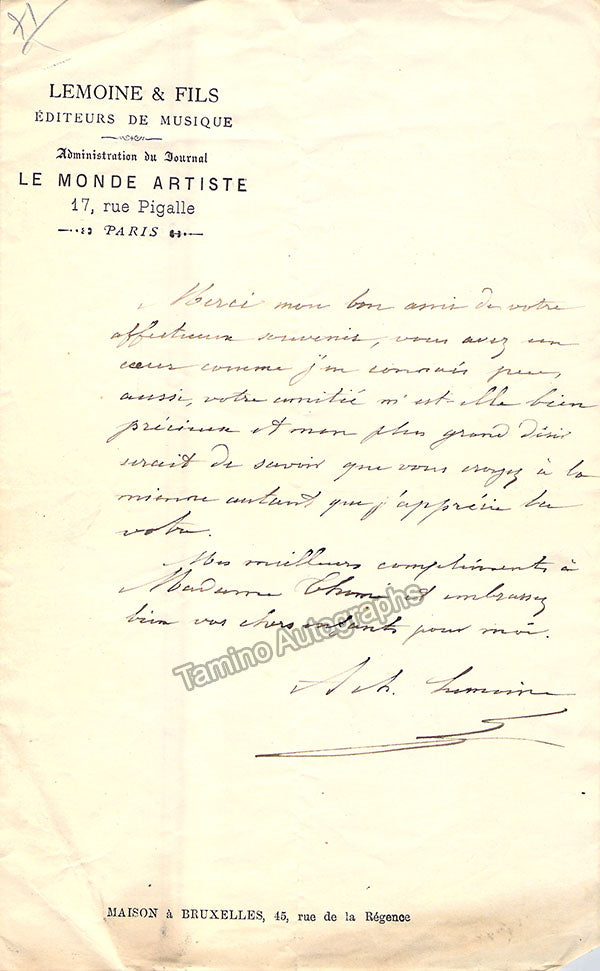 LEMOINE & FILS
ÉDITEURS DE MUSIQUE
Administration du Journal
LE MONDE ARTISTE
17, rue Pigalle
PARIS
Merci mon bon ami de votre
affectueux souvenir, vous avez un
cœur comme j'en connais peu,
aussi, votre amitié m'est-elle bien
précieuse et mon plus grand désir
serait de savoir que vous croyez à la
mienne autant que j'apprécie la
votre.
Mes meilleurs compliments à
Madame et embrassez
bien vos chers enfants pour moi.
Ach. Lemoine
Tamino Autographs
MAISON à BRUXELLES, 45, rue de la Régence